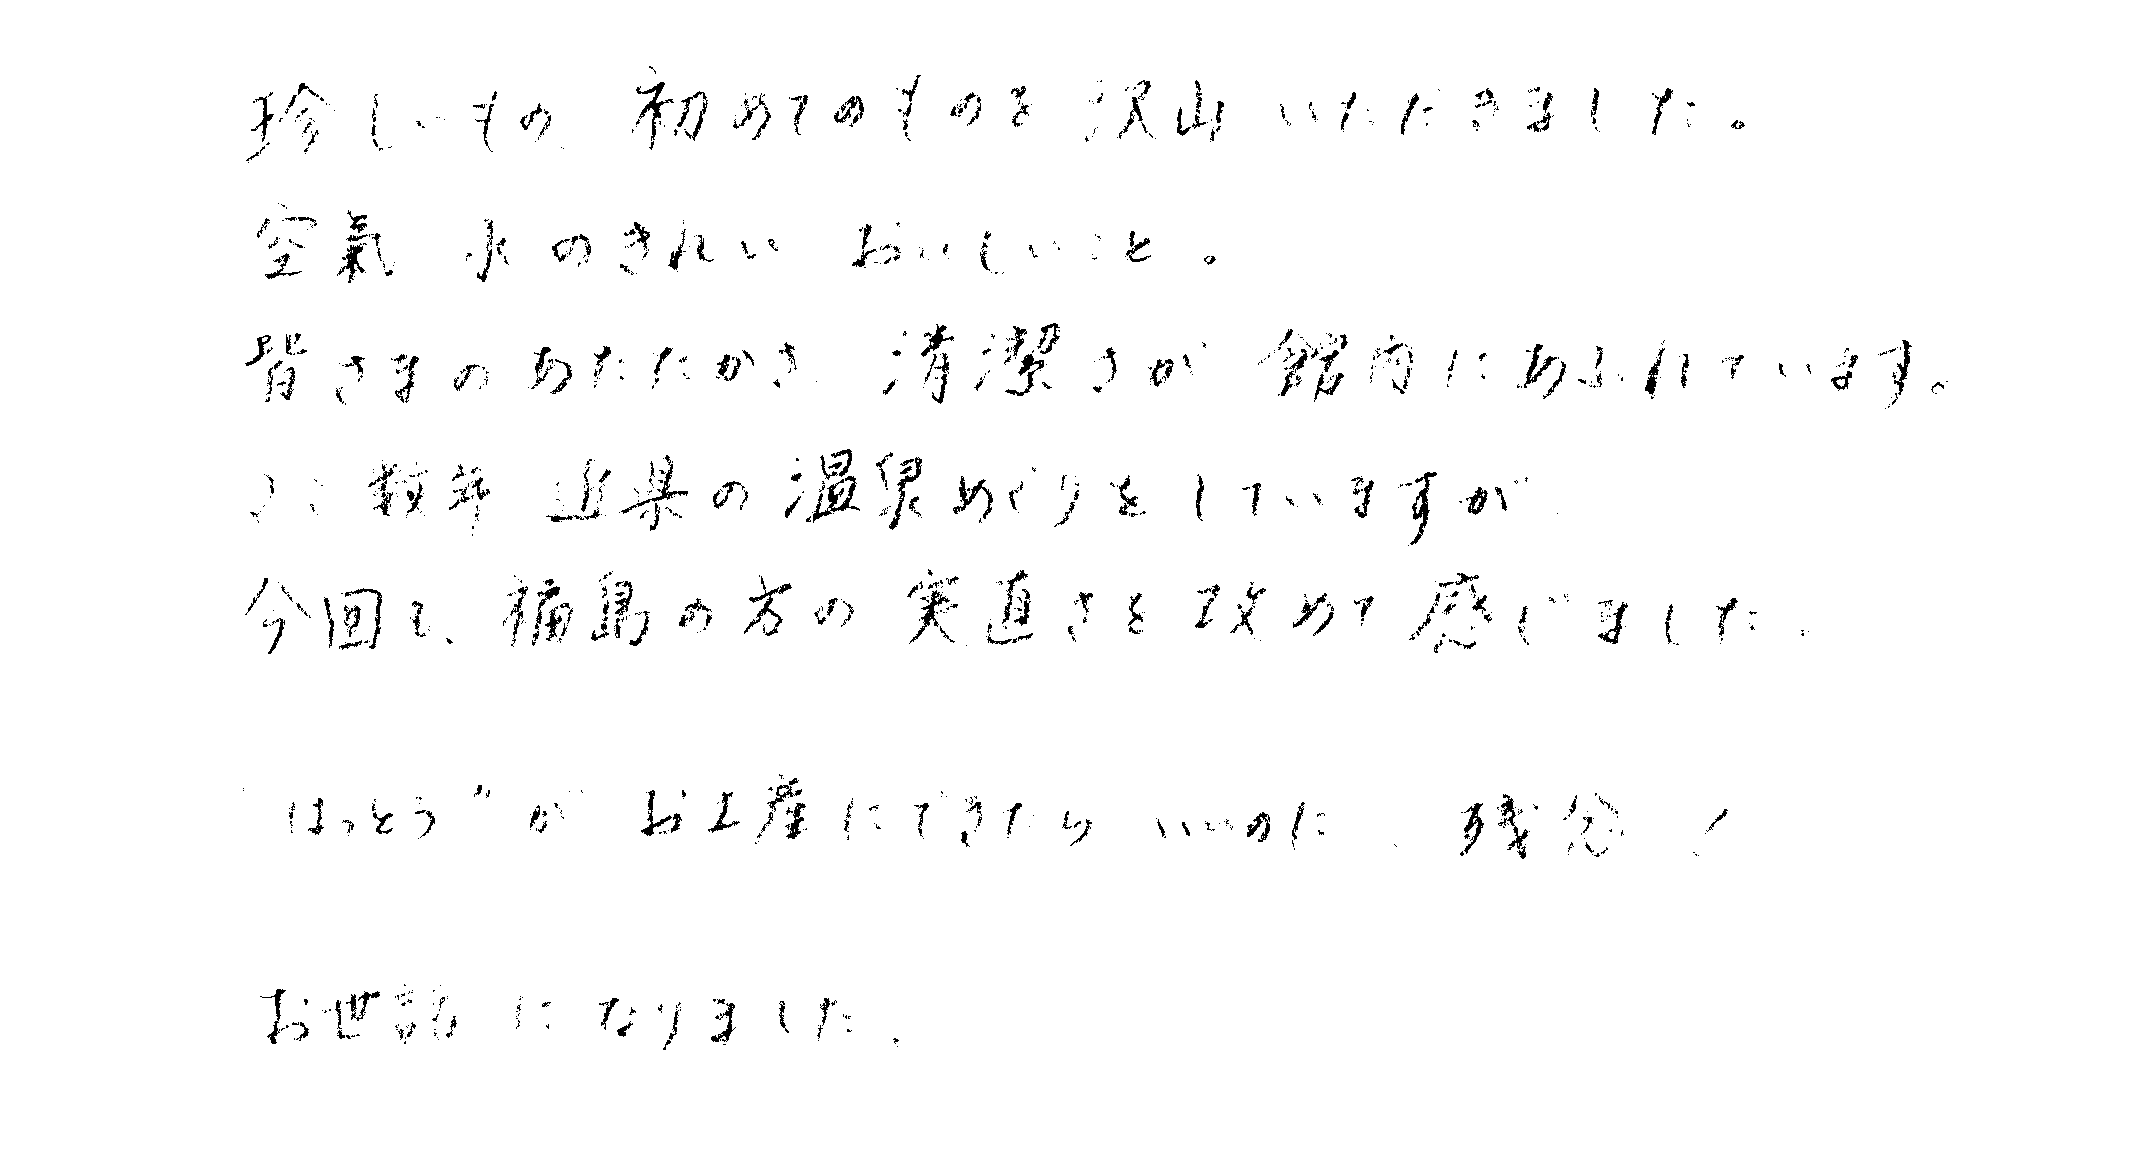 珍しいもの、初めてのものを沢山いただきました。
空氣 水のきれい おいしいこと。
皆さまのあたたかさ、清潔さが館内にあふれています。
ここ数年 近県の温泉めぐりをしていますが、
今回も、福島の方の実直さを改めて感じました。
"はっとう"がお土産にできたら いいのに、残念!
お世話になりました。